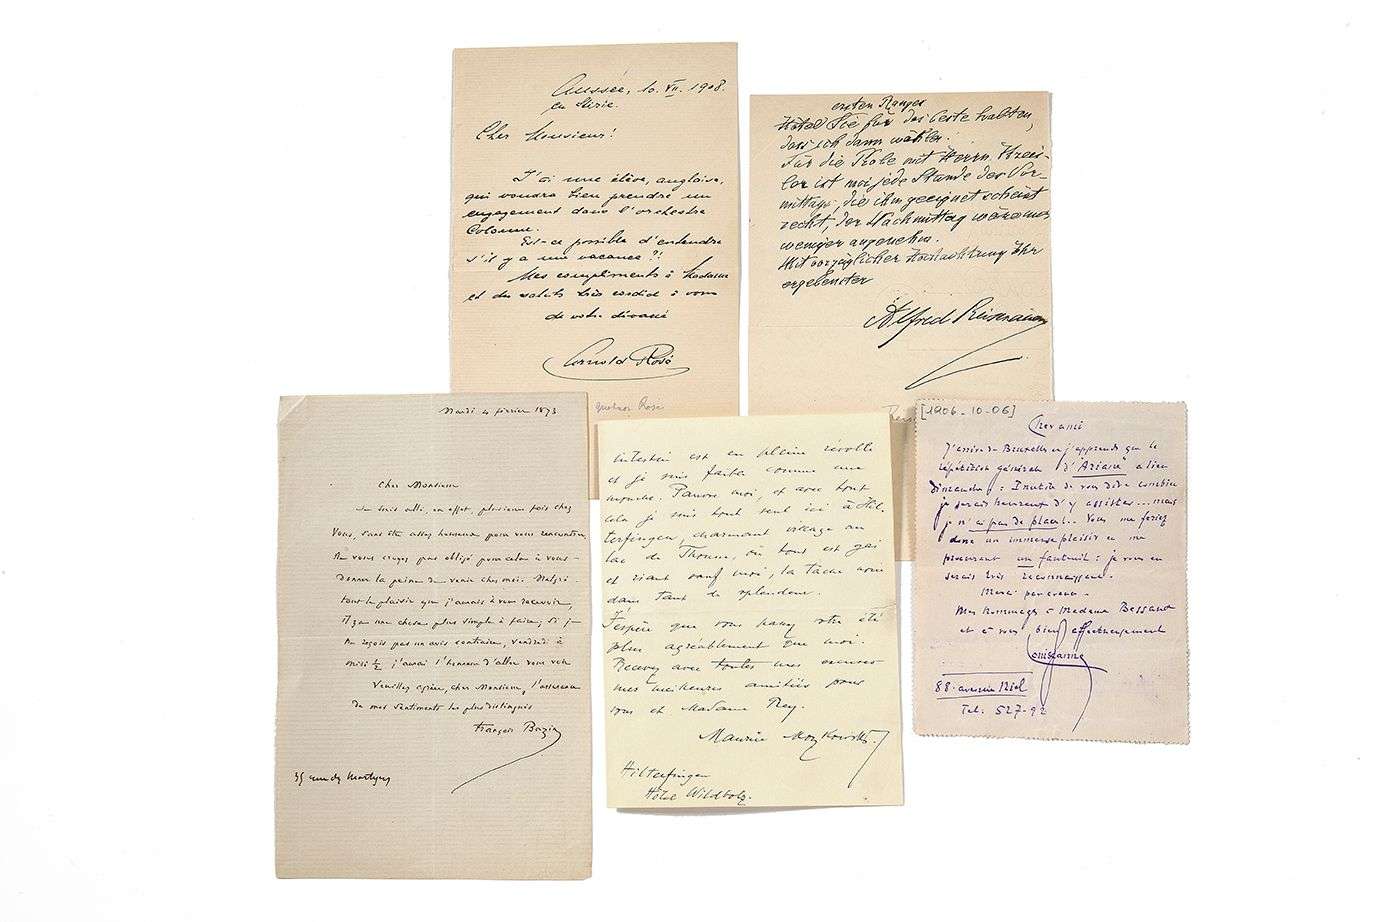 Aussée, 10. VII. 1908.
en Stirie.
Cher Monsieur!
J'ai une élève, anglaise,
qui voudra bien prendre un
engagement dans l'orchestre
Colonne.
Est-ce possible d'entendre
s'il y a une vacance?!
Mes compliments à Madame
et des saluts très cordial à vous
de votre dévoué
Arnold Rosé
quatuor Rosé
ersten Ranges
Hotel Sie für das beste halten,
dass ich dann wähle.
Für die Probe mit Herrn Kreis-
ler ist mir jede Stunde des Vor-
mittags, die ihm geeignet scheint
recht, der Nachmittag wäre mir
weniger angenehm.
Mit vorzüglicher Hochachtung Ihr
ergebenster
Alfred Reisenauer
Mardi 4 février 1873
Cher Monsieur
Je suis allé, en effet, plusieurs fois chez
Vous, sans être assez heureux pour vous rencontrer.
Ne vous croyez pas obligé pour cela à vous
donner la peine de venir chez moi. Malgré
tout le plaisir que j'aurais à vous recevoir,
il y a une chose plus simple à faire, si je
ne reçois pas un avis contraire, vendredi à
midi ½ j'aurai l'honneur d'aller vous voir
Veuillez agréer, cher Monsieur, l'assurance
de mes sentiments les plus distingués
François Bazin
35 rue des Martyrs
intestin est en pleine révolte
et je suis faible comme une
mouche. Pauvre moi, et avec tout
cela je suis tout seul ici à Hil-
terfingen, charmant village au
lac de Thoune, où tout est gai
et riant sauf moi, la tache noire
dans tant de splendeur.
J'espère que vous passez votre été
plus agréablement que moi.
Recevez avec toutes mes excuses
mes meilleures amitiés pour
vous et Madame Rey.
Maurice Moszkowski
Hilterfingen
Hôtel Wildbolz.
[1906-10-06]
Cher ami
J'arrive de Bruxelles et j'apprends que la
répétition générale d'"Ariane" a lieu
dimanche : Inutile de vous dire combien
je serais heureux d'y assister... mais
je n'ai pas de place!.. Vous me feriez
donc un immense plaisir en me
procurant un fauteuil : je vous en
serais très reconnaissant.
Merci par avance.
Mes hommages à Madame Bessand
et à vous bien affectueusement
Louis Ganne
88. avenue Niel
Tel: 527-92